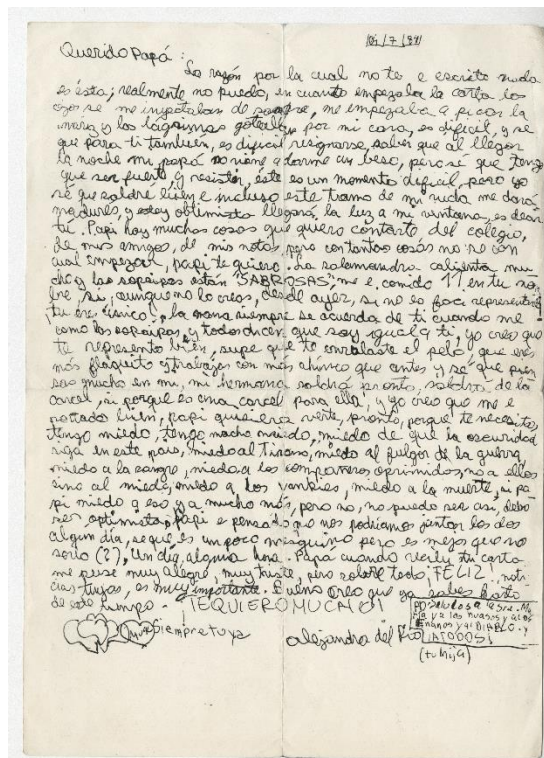 04/7/891
Querido Papá:
La razón por la cual no te e escrito nada
es ésta; realmente no puedo, en cuanto empezaba la carta los
ojos se me inyectaban de sangre, me empezaba a picar la
nariz y las lágrimas por mi cara, es dificil, y se
que para ti tambien, es dificil resignarse, saber que al llegar
la noche mi papá no viene a darme un beso, pero sé que tengo
que ser fuerte y resistir, éste es un momento dificil, pero yo
sé que saldré bien e incluso este tramo de mi vida me dará
madures, y estoy obtimista llegará la luz a mi ventana, es decir
tú. Papi hay muchas cosas que quiero contarte del colegio,
de mis amigos, de mis notas, pero con tantas cosas no se con
cual empezar, papi te quiero. La salamandra calienta mu
cho y las sopaipas están "SABROSAS", me e, comido 11 en tu nom
bre, si, aunque no lo creas, desde ayer, si no es facil representarte
¡tu ere único!, la nona siempre se acuerda de ti cuando me
como las sopaipas, y todos dicen que soy igual a ti, yo creo que
te represento bien, supe que te enrulaste el pelo, que eres
más flaquito y trabajas con más ahínco que antes y sé que pien
sas mucho en mi, mi hermana saldrá pronto, saldrá de la
carcel, si porque es una carcel para ella, y yo creo que me e
portado bien, papi quisiera verte, pronto, porque te necesito,
tengo miedo, tengo mucho miedo, miedo de que la oscuridad
rija en este pais, miedo al Tirano, miedo al fulgor de la guerra,
miedo a la sangre, miedo a los compañeros oprimidos, no a ellos
sino al miedo, miedo a los yankies, miedo a la muerte, si pa
pi miedo a eso y a mucho más, pero no, no puedo ser asi, debo
ser optimista, papi e pensado que nos podriamos juntar los dos
algun dia, se que es un poco mesquino pero es mejor que no
verlo (?), Un dia, alguna hora. Papá cuando recibi tu carta
me puse muy alegre, muy triste, pero sobre todo, FELIZ, noti
cias tuyas, es muy importante. Bueno creo que ya sabes harto
de este tiempo. ¡TE QUIERO MUCHO!
Siempre tuya
alejandra del Río
(tu hija)
PD Saludos a Sra. Ma
ría y a los huasos y a los
enanos y al DIABLO. y
¡A TODOS!